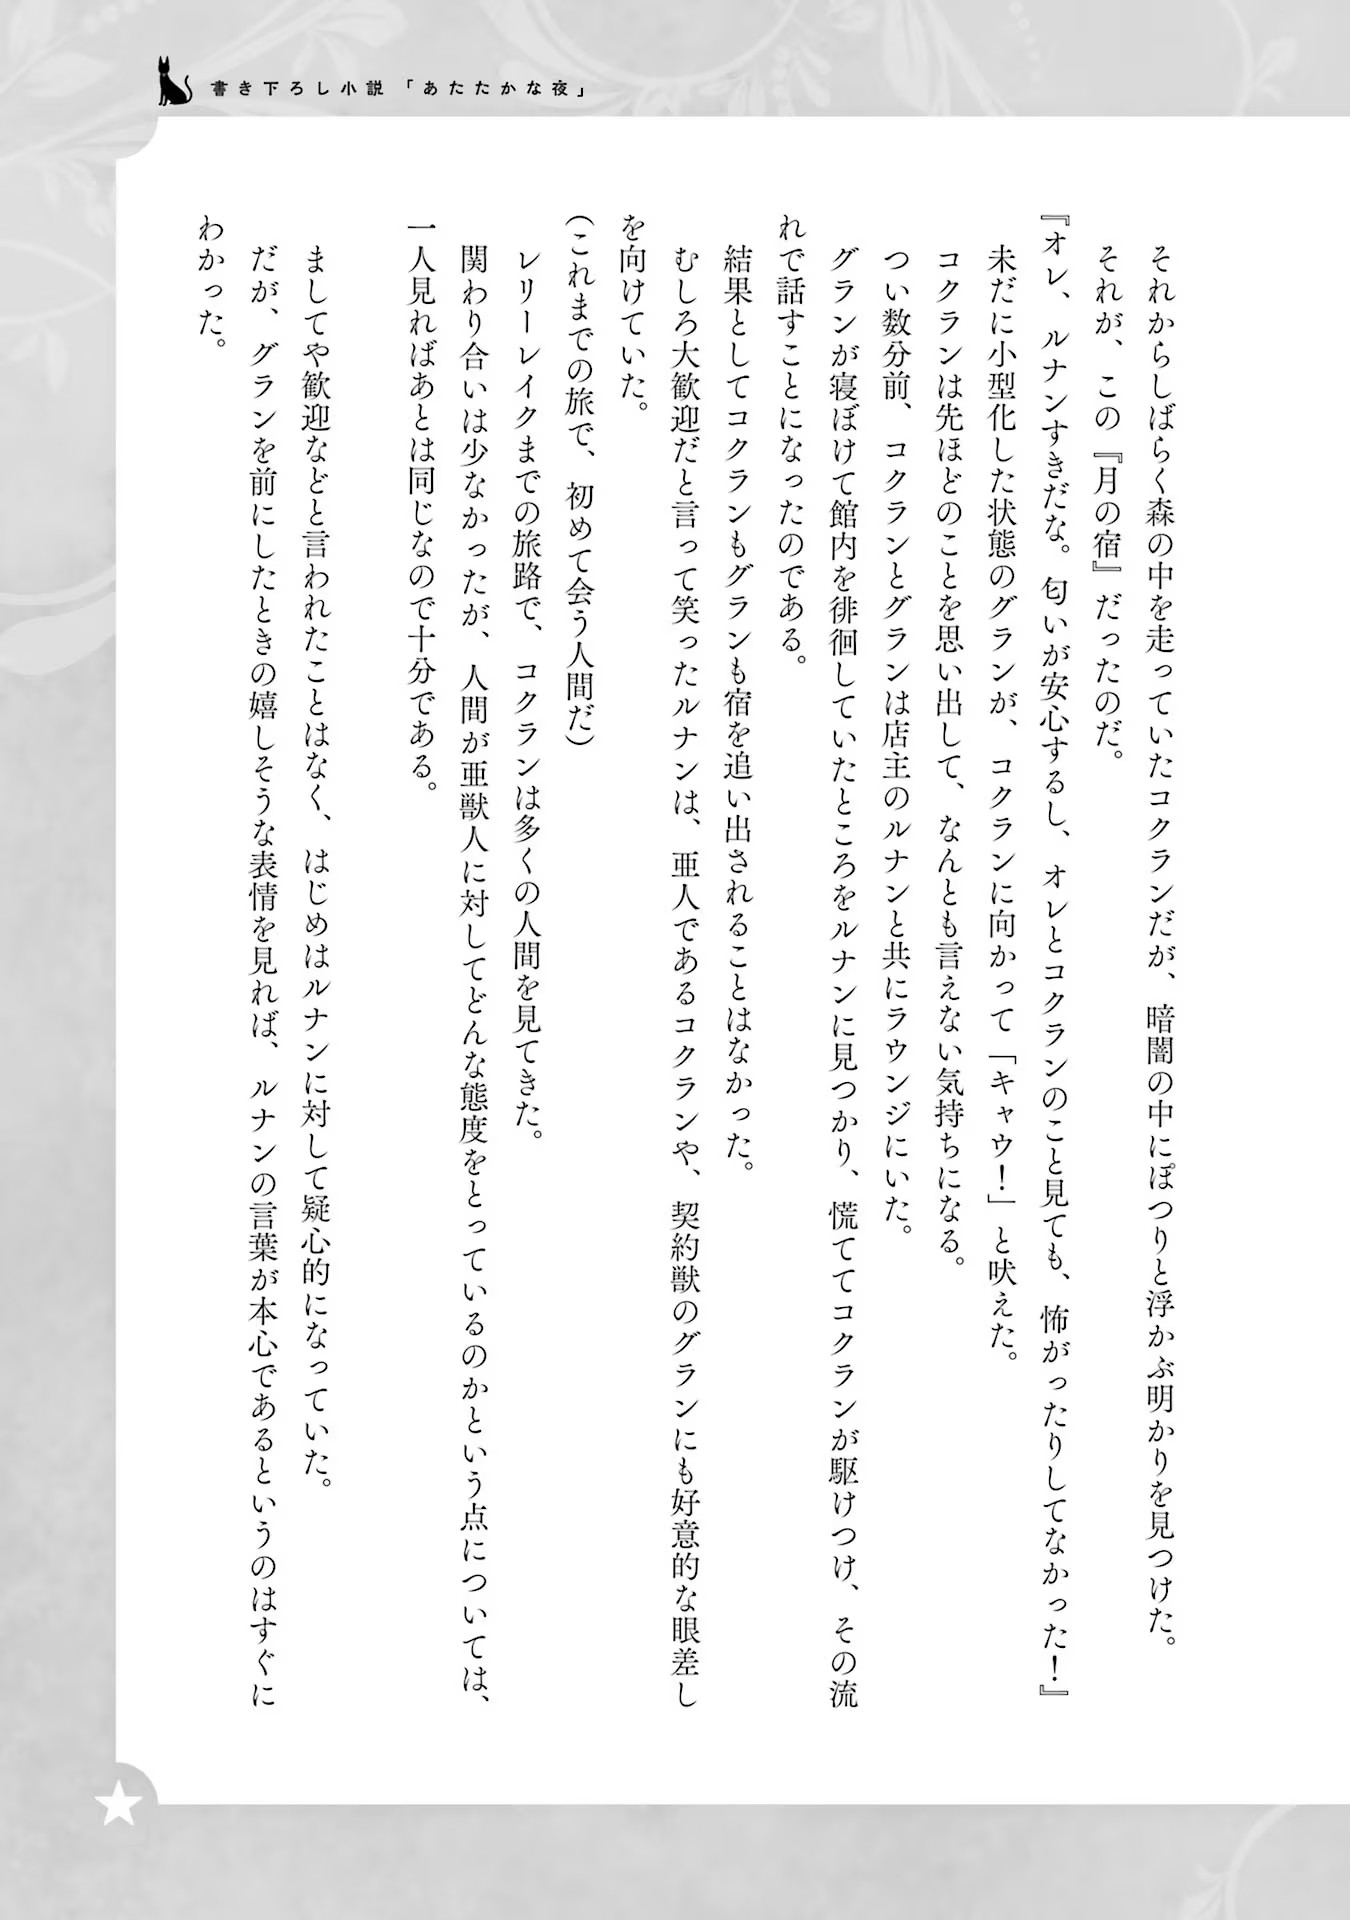 書き下ろし小説「あたたかな夜」
それからしばらく森の中を走っていたコクランだが、暗闇の中にぽつりと浮かぶ明かりを見つけた。
それが、この『月の宿』だったのだ。
『オレ、ルナンすきだな。匂いが安心するし、オレとコクランのこと見ても、怖がったりしてなかった！』
未だに小型化した状態のグランが、コクランに向かって「キャウ！」と吠えた。
コクランは先ほどのことを思い出して、なんとも言えない気持ちになる。
つい数分前、コクランとグランは店主のルナンと共にラウンジにいた。
グランが寝ぼけて館内を徘徊していたところをルナンに見つかり、慌ててコクランが駆けつけ、その流
れで話すことになったのである。
結果としてコクランもグランも宿を追い出されることはなかった。
むしろ大歓迎だと言って笑ったルナンは、亜人であるコクランや、契約獣のグランにも好意的な眼差し
を向けていた。
（これまでの旅で、初めて会う人間だ）
レリーレイクまでの旅路で、コクランは多くの人間を見てきた。
関わり合いは少なかったが、人間が亜獣人に対してどんな態度をとっているのかという点については、
一人見ればあとは同じなので十分である。
ましてや歓迎などと言われたことはなく、はじめはルナンに対して疑心的になっていた。
だが、グランを前にしたときの嬉しそうな表情を見れば、ルナンの言葉が本心であるというのはすぐに
わかった。